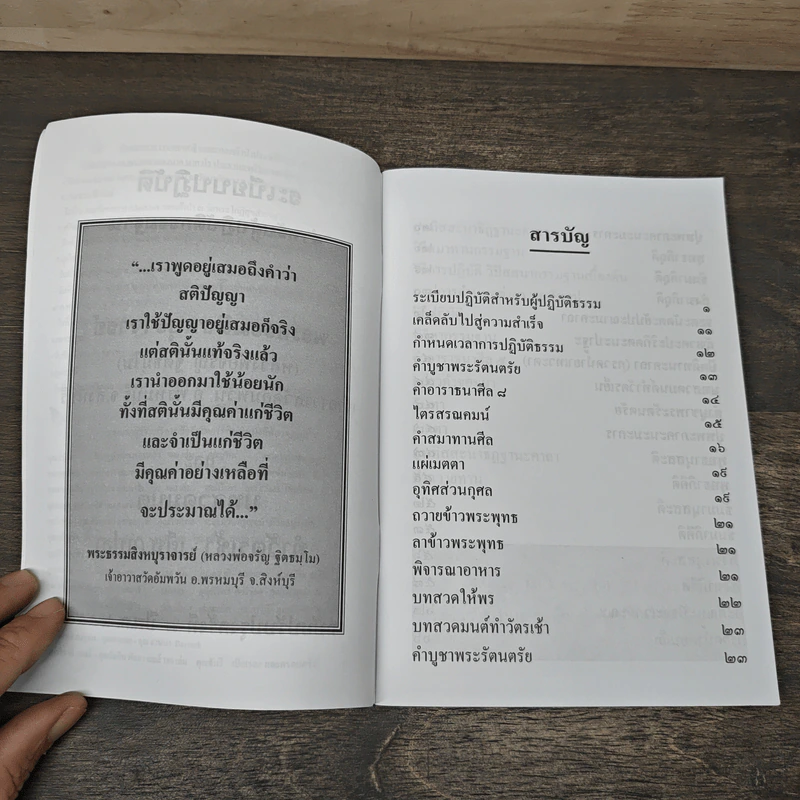 “...เราพูดอยู่เสมอถึงคำว่า
สติปัญญา
เราใช้ปัญญาอยู่เสมอก็จริง
แต่สตินั้นแท้จริงแล้ว
เรานำออกมาใช้น้อยนัก
ทั้งที่สตินั้นมีคุณค่าแก่ชีวิต
และจำเป็นแก่ชีวิต
มีคุณค่าอย่างเหลือที่
จะประมาณได้...”
พระธรรมสิงหบุราจารย์ (หลวงพ่อจรัญ ฐิตธมฺโม)
เจ้าอาวาสวัดอัมพวัน อ.พรหมบุรี จ.สิงห์บุรี
สารบัญ
ระเบียบปฏิบัติสำหรับผู้ปฏิบัติธรรม ๑
เคล็ดลับไปสู่ความสำเร็จ ๑๑
กำหนดเวลาการปฏิบัติธรรม ๑๒
คำบูชาพระรัตนตรัย ๑๓
คำอาราธนาศีล ๘ ๑๔
ไตรสรณคมน์ ๑๕
คำสมาทานศีล ๑๖
แผ่เมตตา ๑๙
อุทิศส่วนกุศล ๑๙
ถวายข้าวพระพุทธ ๒๑
ลาข้าวพระพุทธ ๒๑
พิจารณาอาหาร ๒๑
บทสวดให้พร ๒๒
บทสวดมนต์ทำวัตรเช้า ๒๓
คำบูชาพระรัตนตรัย ๒๓